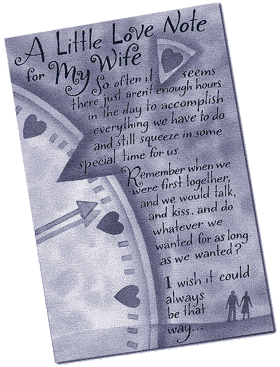 A Little Love Note
for My Wife
So often it seems
there just aren't enough hours
in the day to accomplish
everything we have to do
and still squeeze in some
special time for us.
Remember when we
were first together,
and we would talk,
and kiss, and do
whatever we
wanted for as long
as we wanted?
I wish it could
always
be that
way...